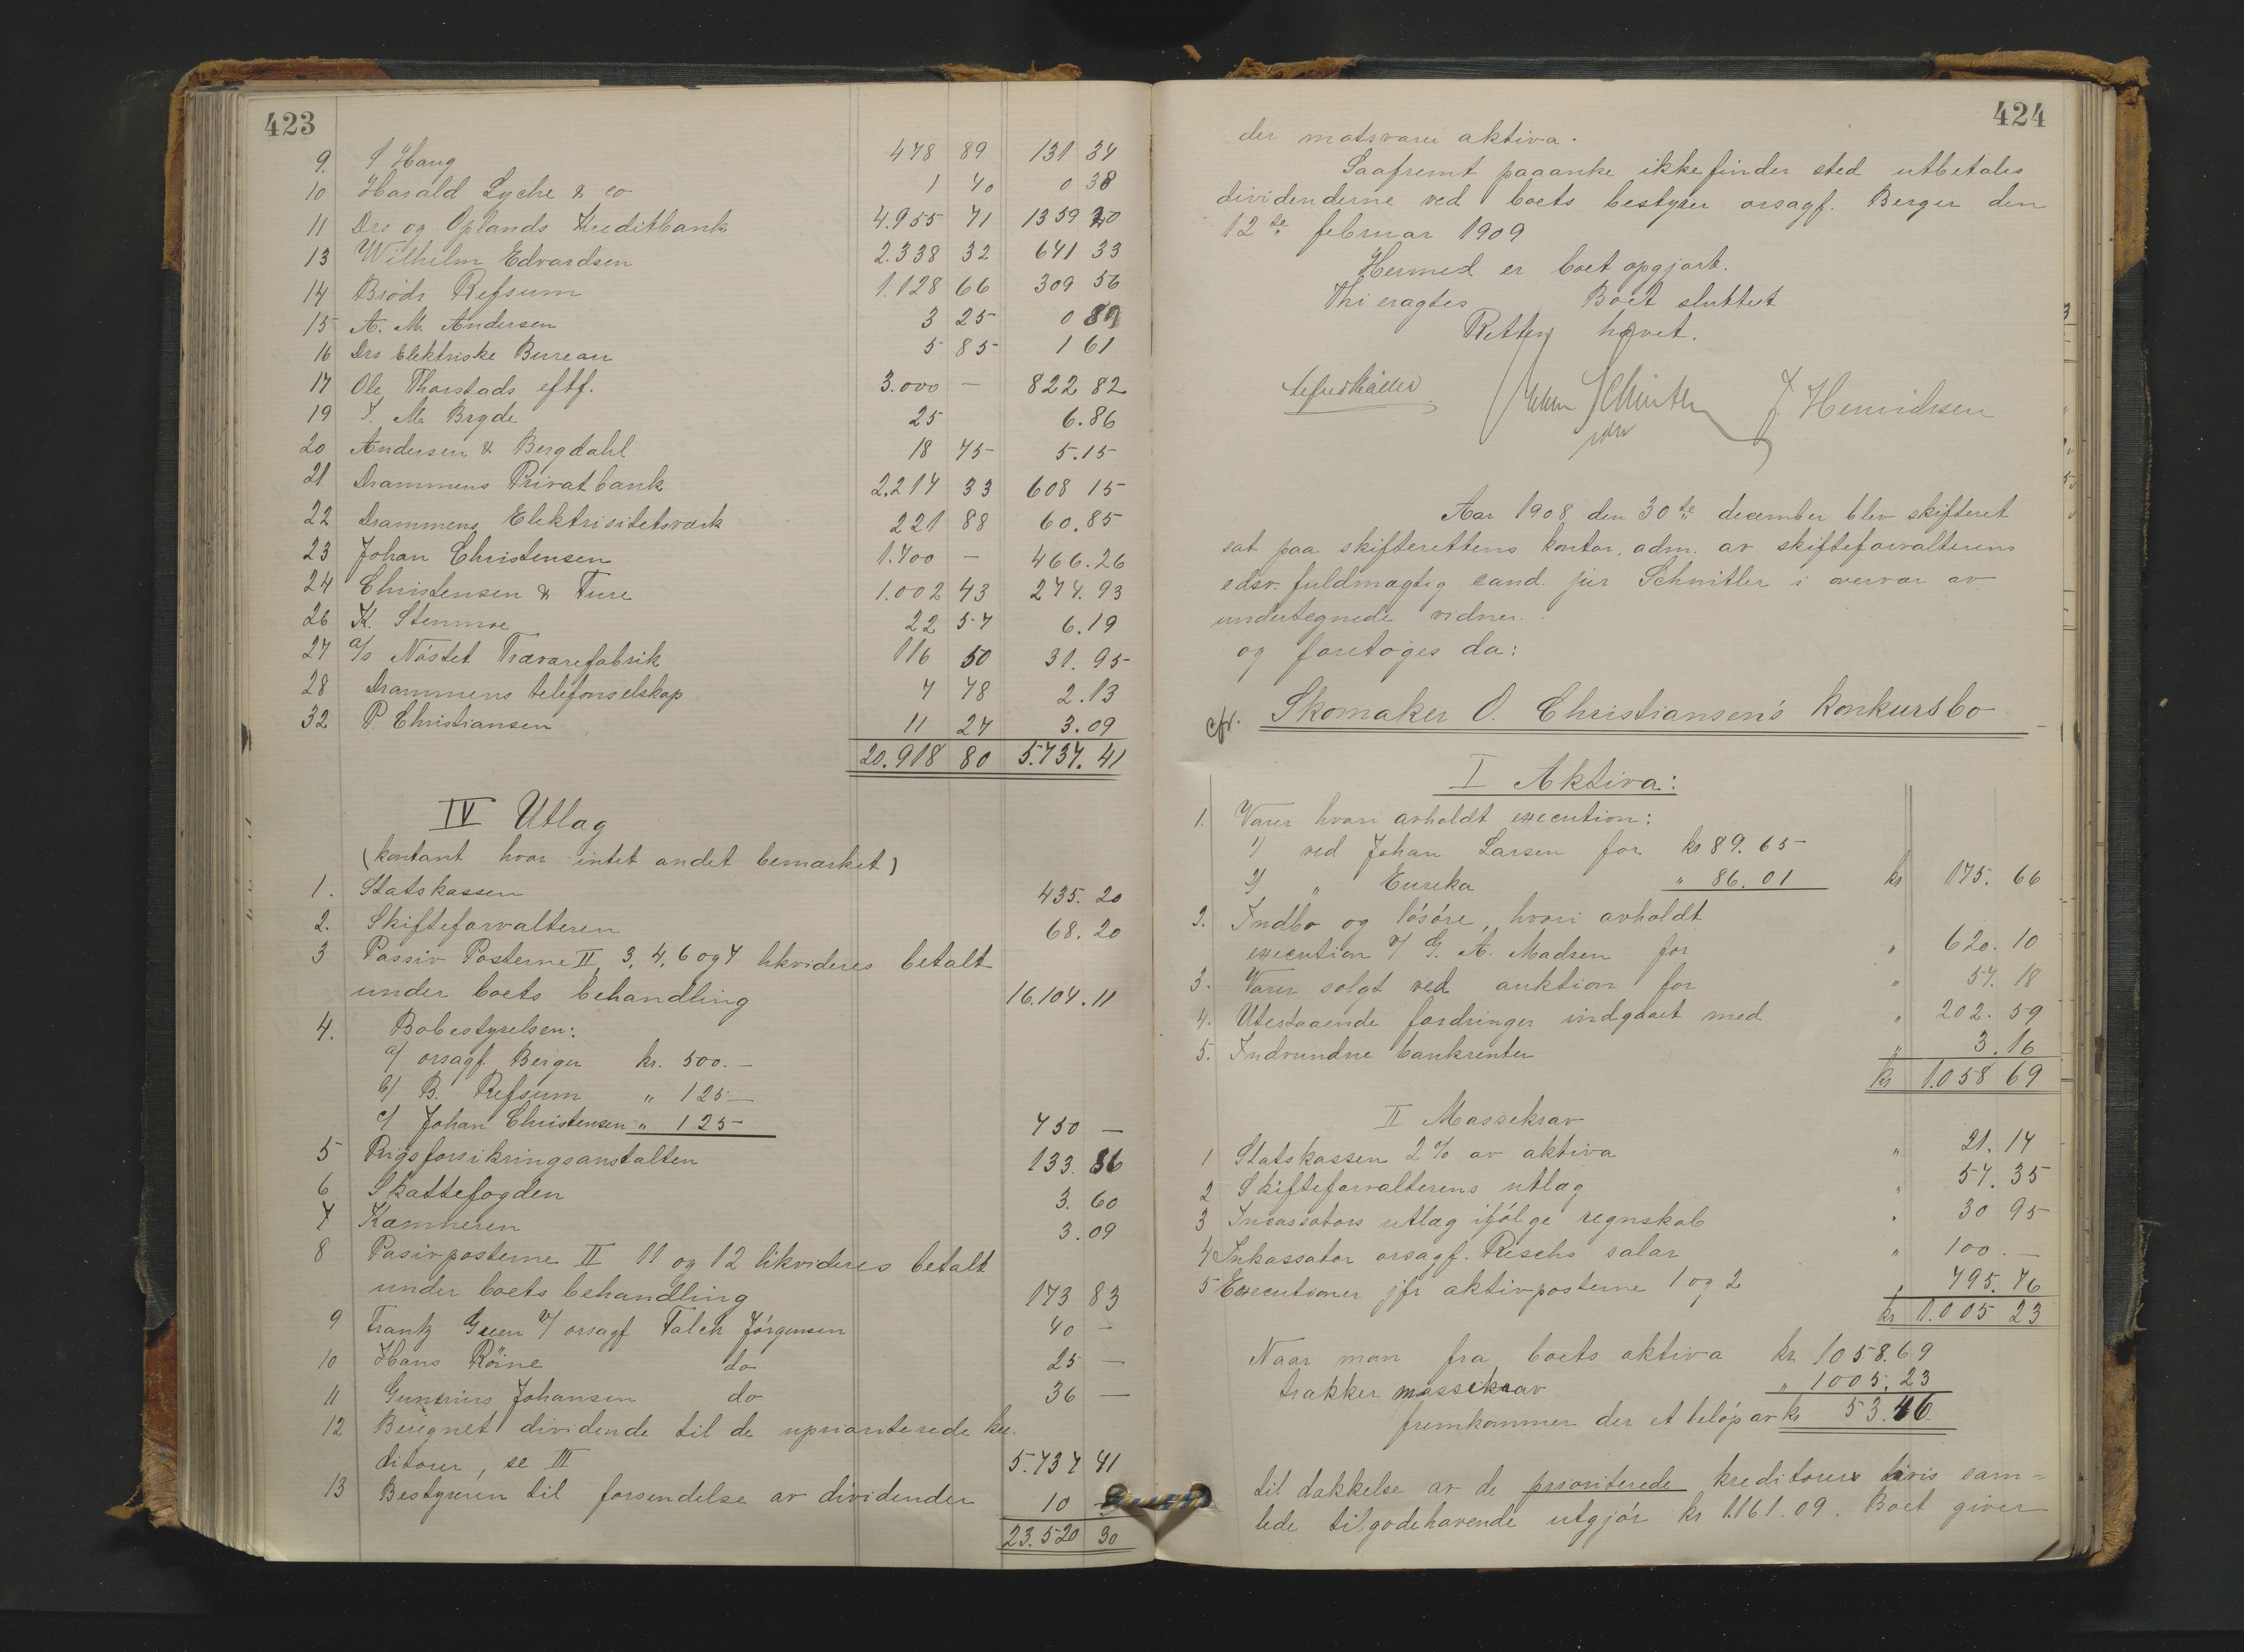 423
9. S Haug 478 89 131 34
10 Harald Lyche & co 1 40 0 38
11 Drs og Oplands Kreditbank 4.955 71 1359 20
13 Wilhelm Edvardsen 2.338 32 641 33
14 Brödr Refsum 1.128 66 309 56
15 A. M. Andersen 3 25 0 89
16 Drs Elektriske Bureau 5 85 1 61
17 Ole Thorstads eftf. 3.000 — 822 82
19 I. M. Bryde 25 6.86
20 Andersen & Bergdahl 18 75 5.15
21 Drammens Privatbank 2.217 33 608 15
22 Drammens Elektrisitetsværk 221 88 60.85
23 Johan Christensen 1.700 — 466.26
24 Christensen & Ture 1.002 43 274.93
26 K. Stenmoe 22 57 6.19
27 a/s Nöstet Trævarefabrik 116 50 31.95
28 Drammens telefonselskap 7 78 2.13
32 P. Christiansen 11 27 3.09
20.918 80 5.737.41
IV Utlag
(kontant hvor intet andet bemærket)
1. Statskassen 435.20
2. Skifteforvalteren 68.20
3 Passiv Posterne II 3, 4, 6 og 7 likvideres betalt
under boets behandling 16.104.11
4. Bobestyrelsen:
a/ orsagf. Berger kr. 500.—
b/ B. Refsum " 125.—
c/ Johan Christensen " 125— 750 —
5 Rigsforsikringsanstalten 133.86
6 Skattefogden 3.60
7 Kæmneren 3.09
8 Pasivposterne II 11 og 12 likvideres betalt
under boets behandling 173 83
9 Frantz Green v/ orsagf Falck Jörgensen 40 —
10 Hans Röine do 25 —
11 Gunerius Johansen do 36 —
12 Beregnet dividende til de uprioriterede kre-
ditorer, se III 5.737 41
13 Bestyreren til forsendelse av dividender 10 —
23.520 30
424
der motsvarer aktiva.
Saafremt paaanke ikke finder sted utbetales
dividenderne ved boets bestyrer orsagf. Berger den
12te februar 1909
Hermed er boet opgjort.
Thi eragtes Boet sluttet
Retten hævet.
J. Henriksen
Aar 1908 den 30te december blev skifteret
sat paa skifterettens kontor, adm. av skifteforvalterens
edsv. fuldmægtig cand. jur Schnitler i overvær av
undertegnede vidner.
og foretoges da:
cfr. Skomaker O. Christiansen's konkursbo
I Aktiva:
1. Varer hvori avholdt execution:
1/ ved Johan Larsen for kr 89.65
2/ " Eureka " 86.01 kr 175.66
2. Indbo og lösöre, hvori avholdt
execution v/ G. A. Madsen for " 620.10
3. Varer solgt ved auktion for " 57.18
4. Utestaaende fordringer indgaaet med " 202.59
5. Indvundne bankrenter " 3.16
kr 1.058 69
II Massekrav
1 Statskassen 2% av aktiva " 21.17
2 Skifteforvalterens utlæg " 57.35
3 Incassators utlæg ifölge regnskab " 30 95
4 Inkassator orsagf. Rischs salær " 100.—
5 Executioner jfr aktivposterne 1 og 2 " 795.76
kr 1.005 23
Naar man fra boets aktiva kr 1058.69
trækker massekrav " 1005.23
fremkommer der et belöp av kr 53.46
til dækkelse av de prioriterede kreditorer hvis sam=
lede tilgodehavende utgjör kr 1.161.09. Boet giver